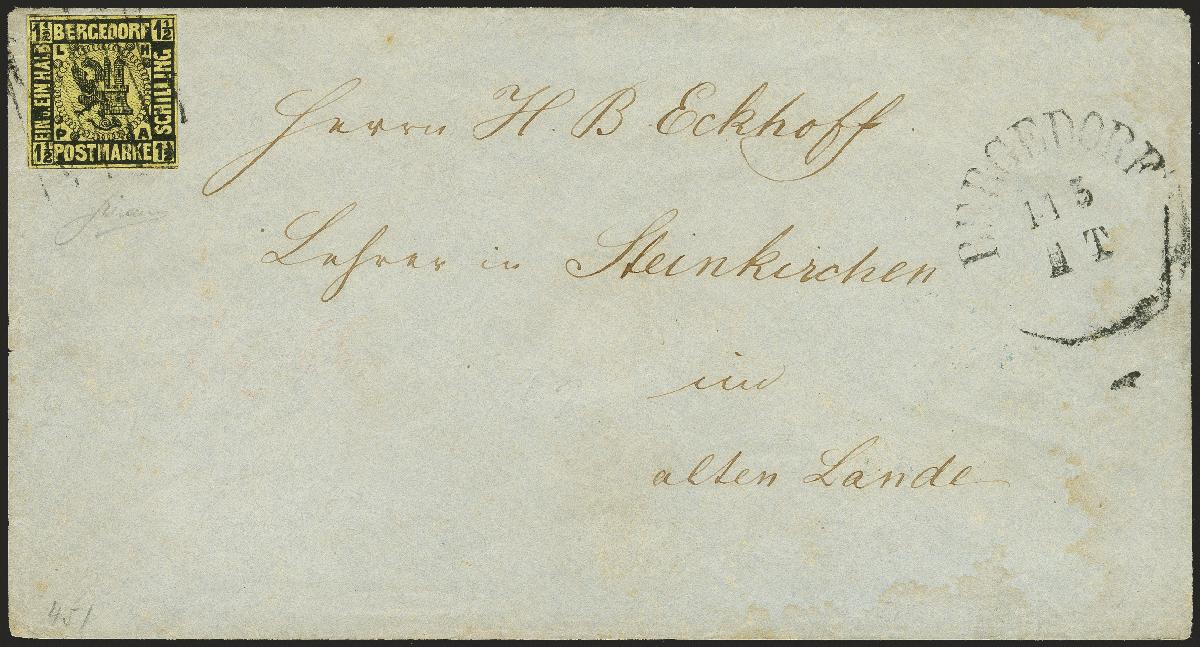 1½ BERGEDORF 1½
L H
EIN u. EIN HALB
SCHILLING
P A
1½ POSTMARKE 1½
Herrn H. B Eckhoff
Lehrer in Steinkirchen
im
alten Lande
BERGEDORF
11 5
T
451